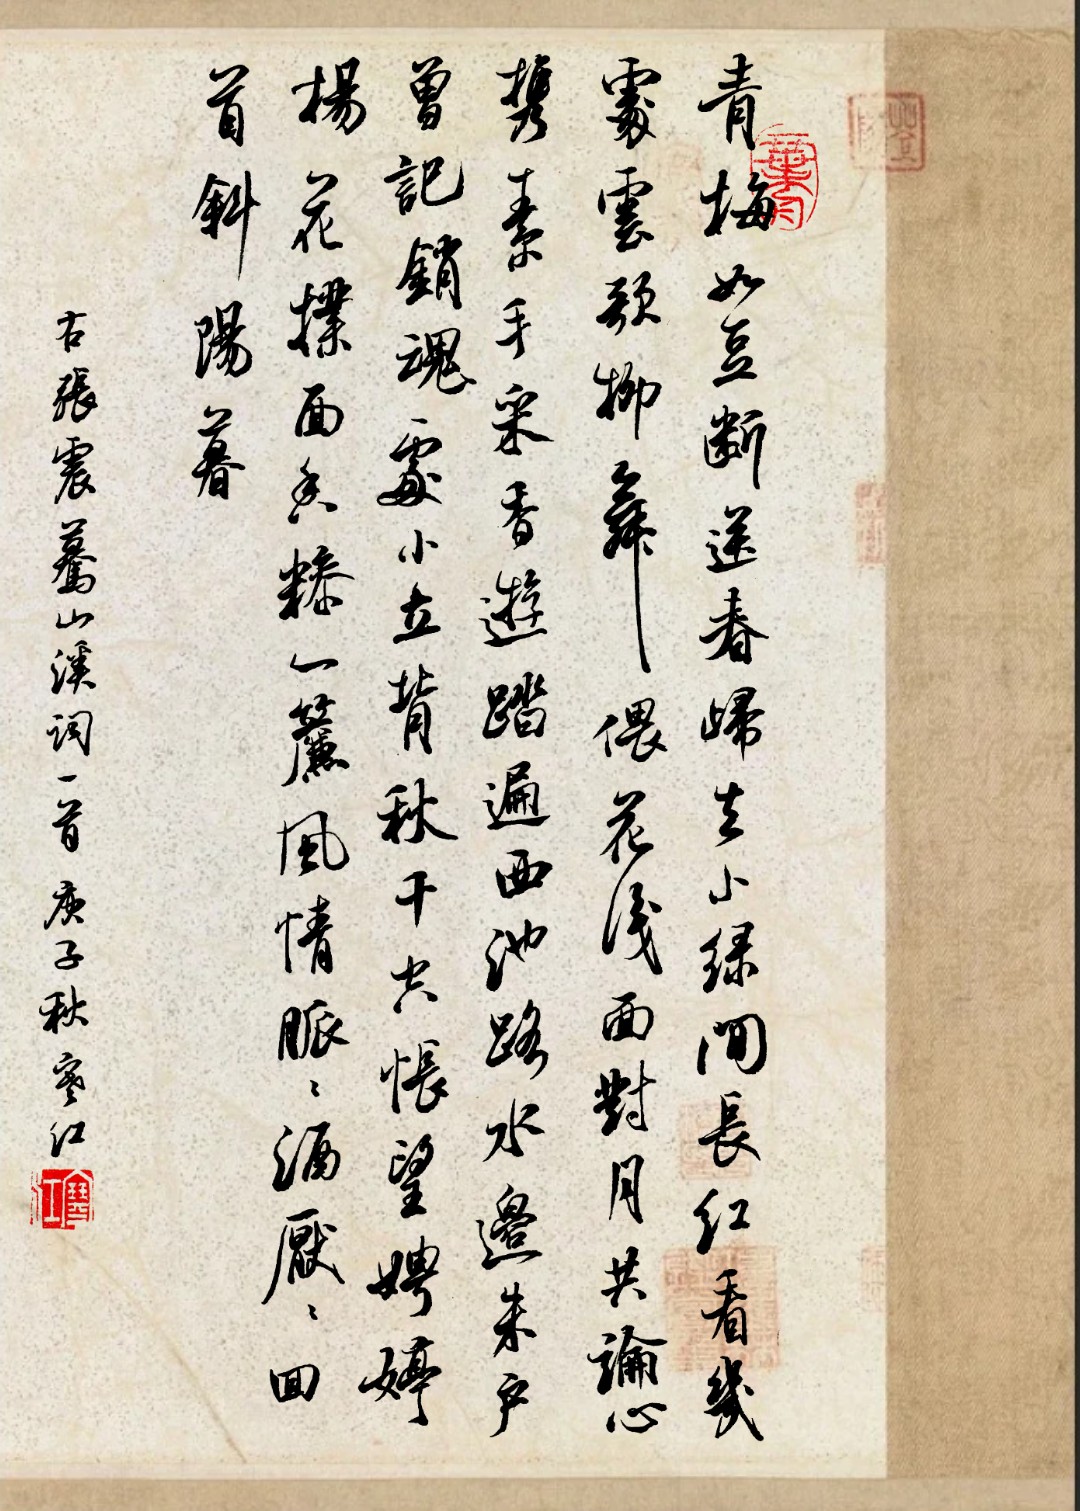 青梅如豆斷送春歸去小緑間長紅看幾
處雲歌柳舞偎花識面對月共論心
携素手采香遊踏遍西池路水邊朱户
曾記銷魂處小立背秋千空悵望娉婷
楊花撲面香糝一簾風情脈〻酒厭〻回
首斜陽暮
右張震驀山溪詞一首庚子秋寒江
寒江